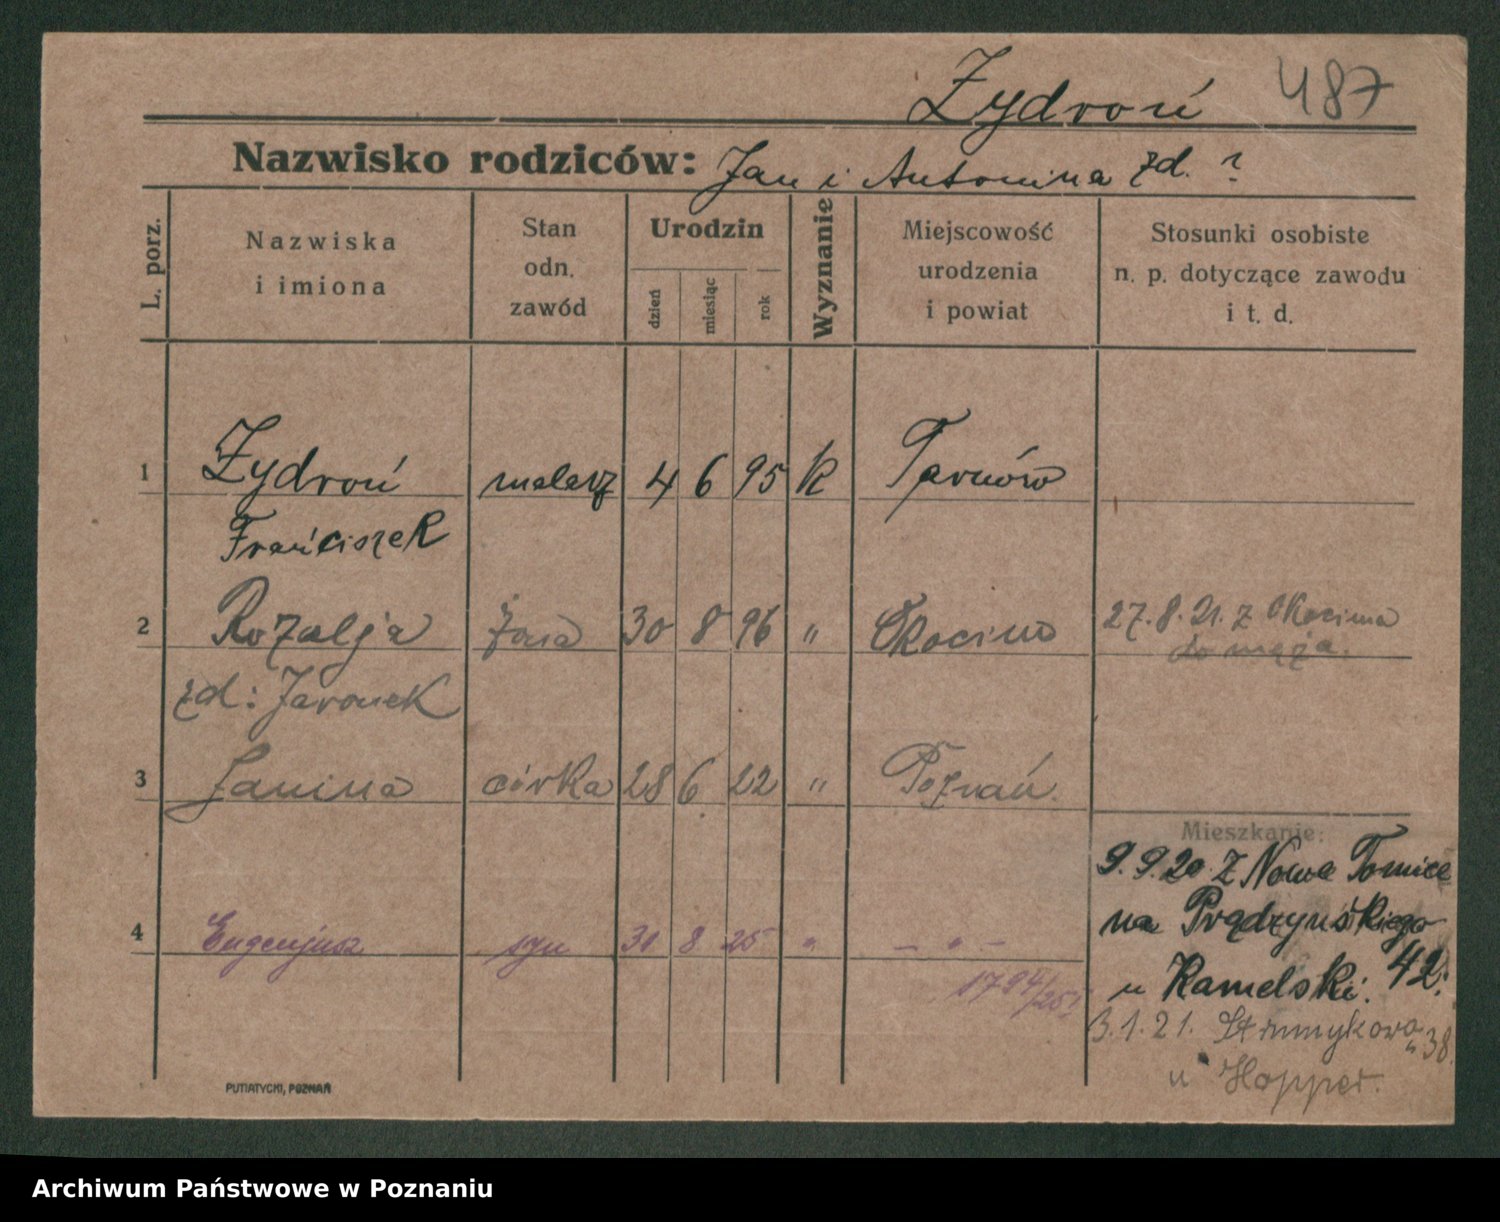 Żydroń 487
Nazwisko rodziców: Jan i Antonina zd. ?
L. porz.
Nazwiska
i imiona
Stan
odn.
zawód
Urodzin
dzień
miesiąc
rok
Wyznanie
Miejscowość
urodzenia
i powiat
Stosunki osobiste
n. p. dotyczące zawodu
i t. d.
1 Żydroń malarz 4 6 95 k Tarnów
Franciszek
2 Rozalja żona 30 8 96 " Okocim 27.8.21. z Okocima
do męża.
zd: Jaronek
3 Janina córka 28 6 22 " Poznań.
Mieszkanie:
9.9.20 z Nowe Tomice
na Prądzyńskiego
4 Eugenjusz syn 30 8 25 " — " —
42.
u Kamelski.
1794/25
3.1.21. 38.
u Hopper.
PUTIATYCKI, POZNAŃ
Archiwum Państwowe w Poznaniu